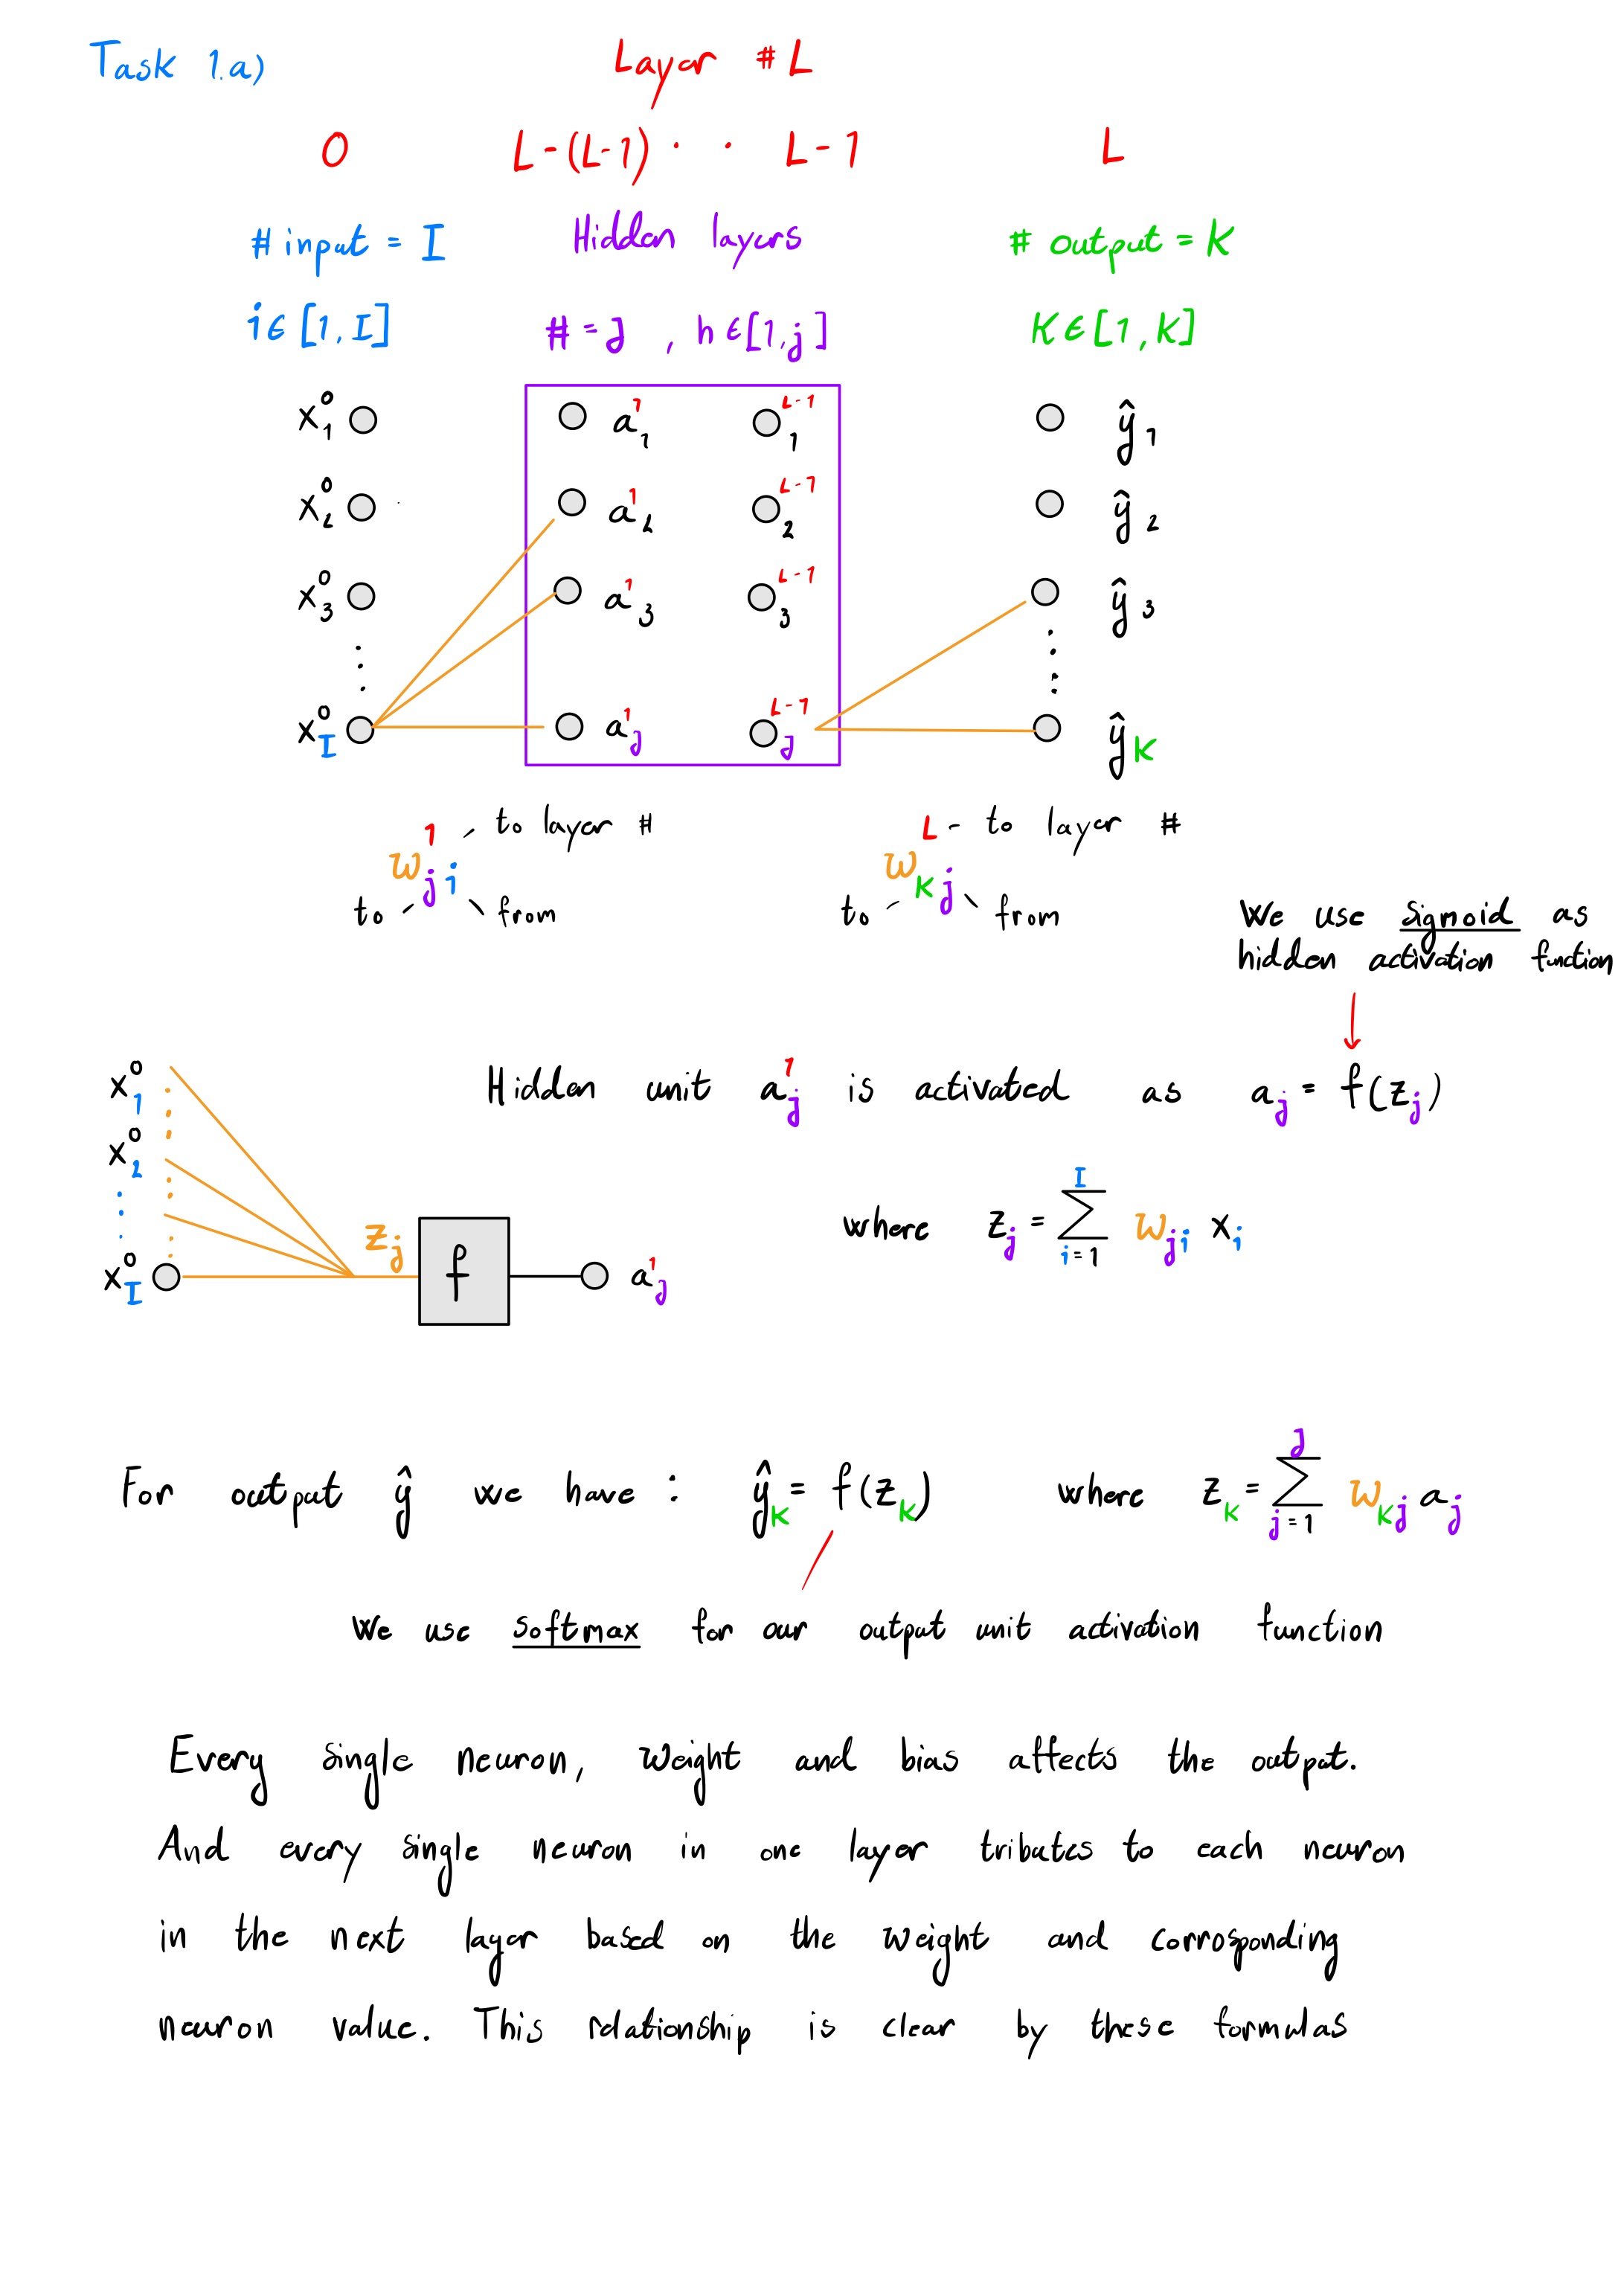 Task 1.a)
Layer # L
0 L-(L-1) · · L-1 L
# input = I Hidden layers # output = K
i∈[1,I] # = J , h∈[1,j] K∈[1,K]
x⁰₁ a¹₁ ᴸ⁻¹₁ ŷ₁
x⁰₂ a¹₂ ᴸ⁻¹₂ ŷ₂
x⁰₃ a¹₃ ᴸ⁻¹₃ ŷ₃
x⁰_I a¹_J ᴸ⁻¹_J ŷ_K
1 - to layer # L - to layer #
w_ji w_kj
to - \ from to - \ from
We use sigmoid as
hidden activation function
x⁰₁
x⁰₂
x⁰_I
z_j
f
a¹_j
Hidden unit a¹_j is activated as a_j = f(z_j)
where z_j = Σ_{i=1}^{I} w_ji x_i
For output ŷ we have : ŷ_k = f(z_k) where z_k = Σ_{j=1}^{J} w_kj a_j
We use softmax for our output unit activation function
Every single neuron, weight and bias affects the output.
And every single neuron in one layer tributes to each neuron
in the next layer based on the weight and corrosponding
neuron value. This relationship is clear by these formulas